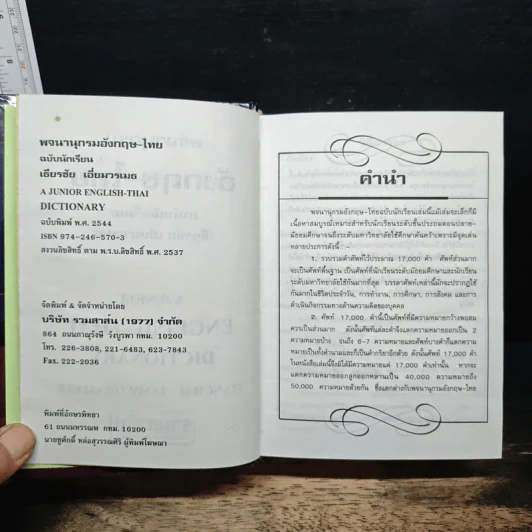 พจนานุกรมอังกฤษ-ไทย
ฉบับนักเรียน
เธียรชัย เอี่ยมวรเมธ
A JUNIOR ENGLISH-THAI
DICTIONARY
ฉบับพิมพ์ พ.ศ. 2544
ISBN 974-246-570-3
สงวนลิขสิทธิ์ ตาม พ.ร.บ.ลิขสิทธิ์ พ.ศ. 2537
จัดพิมพ์ & จัดจำหน่ายโดย
บริษัท รวมสาส์น (1977) จำกัด
864 ถนนภาณุรังษี วังบูรพา กทม. 10200
โทร. 226-3808, 221-6483, 623-7843
Fax. 222-2036
พิมพ์ที่อักษรพิทยา
61 ถนนมหรรณพ กทม. 10200
นายชูศักดิ์ หล่อสุวรรณศิริ ผู้พิมพ์โฆษณา
คำนำ
พจนานุกรมอังกฤษ-ไทยฉบับนักเรียนเล่มนี้แม้เล่มจะเล็กก็มี
เนื้อหาสมบูรณ์เหมาะสำหรับนักเรียนระดับชั้นประถมตอนปลาย-
มัธยมศึกษาจนถึงระดับมหาวิทยาลัยใช้ศึกษาค้นคว้าเพราะมีจุดเด่น
หลายประการดังนี้
1. รวบรวมคำศัพท์ไว้ประมาณ 17,000 คำ ส่วนมาก
จะเป็นศัพท์พื้นฐาน เป็นศัพท์ที่นักเรียนระดับมัธยมศึกษาและนักเรียน
ระดับมหาวิทยาลัยใช้กันมากที่สุด บรรดาศัพท์เหล่านี้มักจะปรากฏใช้
กันมากในชีวิตประจำวัน, การทำงาน, การศึกษา, การสังคม และการ
ดำเนินกิจกรรมทางด้านความคิดของบุคคล
2. ศัพท์ 17,000 คำนี้เป็นศัพท์ที่มีความหมายกว้างพอสม
ควรเป็นส่วนมาก ดังนั้นศัพท์แต่ละคำจึงแตกความหมายออกเป็น 2
ความหมายบ้าง จนถึง 6-7 ความหมายและศัพท์บางคำก็แตกความ
หมายเป็นทั้งคำนามและก็เป็นคำกริยาอีกด้วย ดังนั้นศัพท์ 17,000 คำ
ในหนังสือเล่มนี้จึงมิได้มีความหมายแค่ 17,000 คำเท่านั้น หากจะ
แตกความหมายออกลูกออกหลานเป็น 40,000 ความหมายถึง
50,000 ความหมายด้วยกัน ซึ่งแตกต่างกับพจนานุกรมอังกฤษ-ไทย